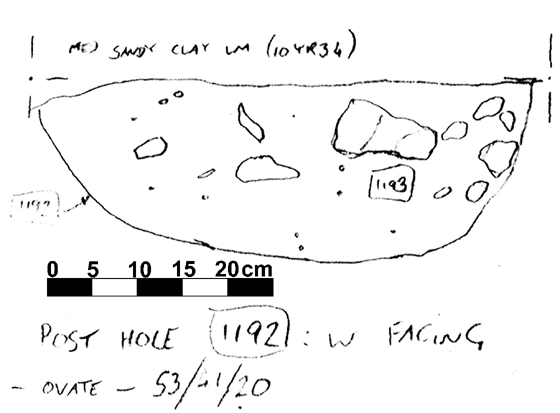 MED SANDY CLAY LM (10YR34)
1193
1192
0 5 10 15 20cm
POST HOLE 1192 : W FACING
- OVATE - 53/41/20